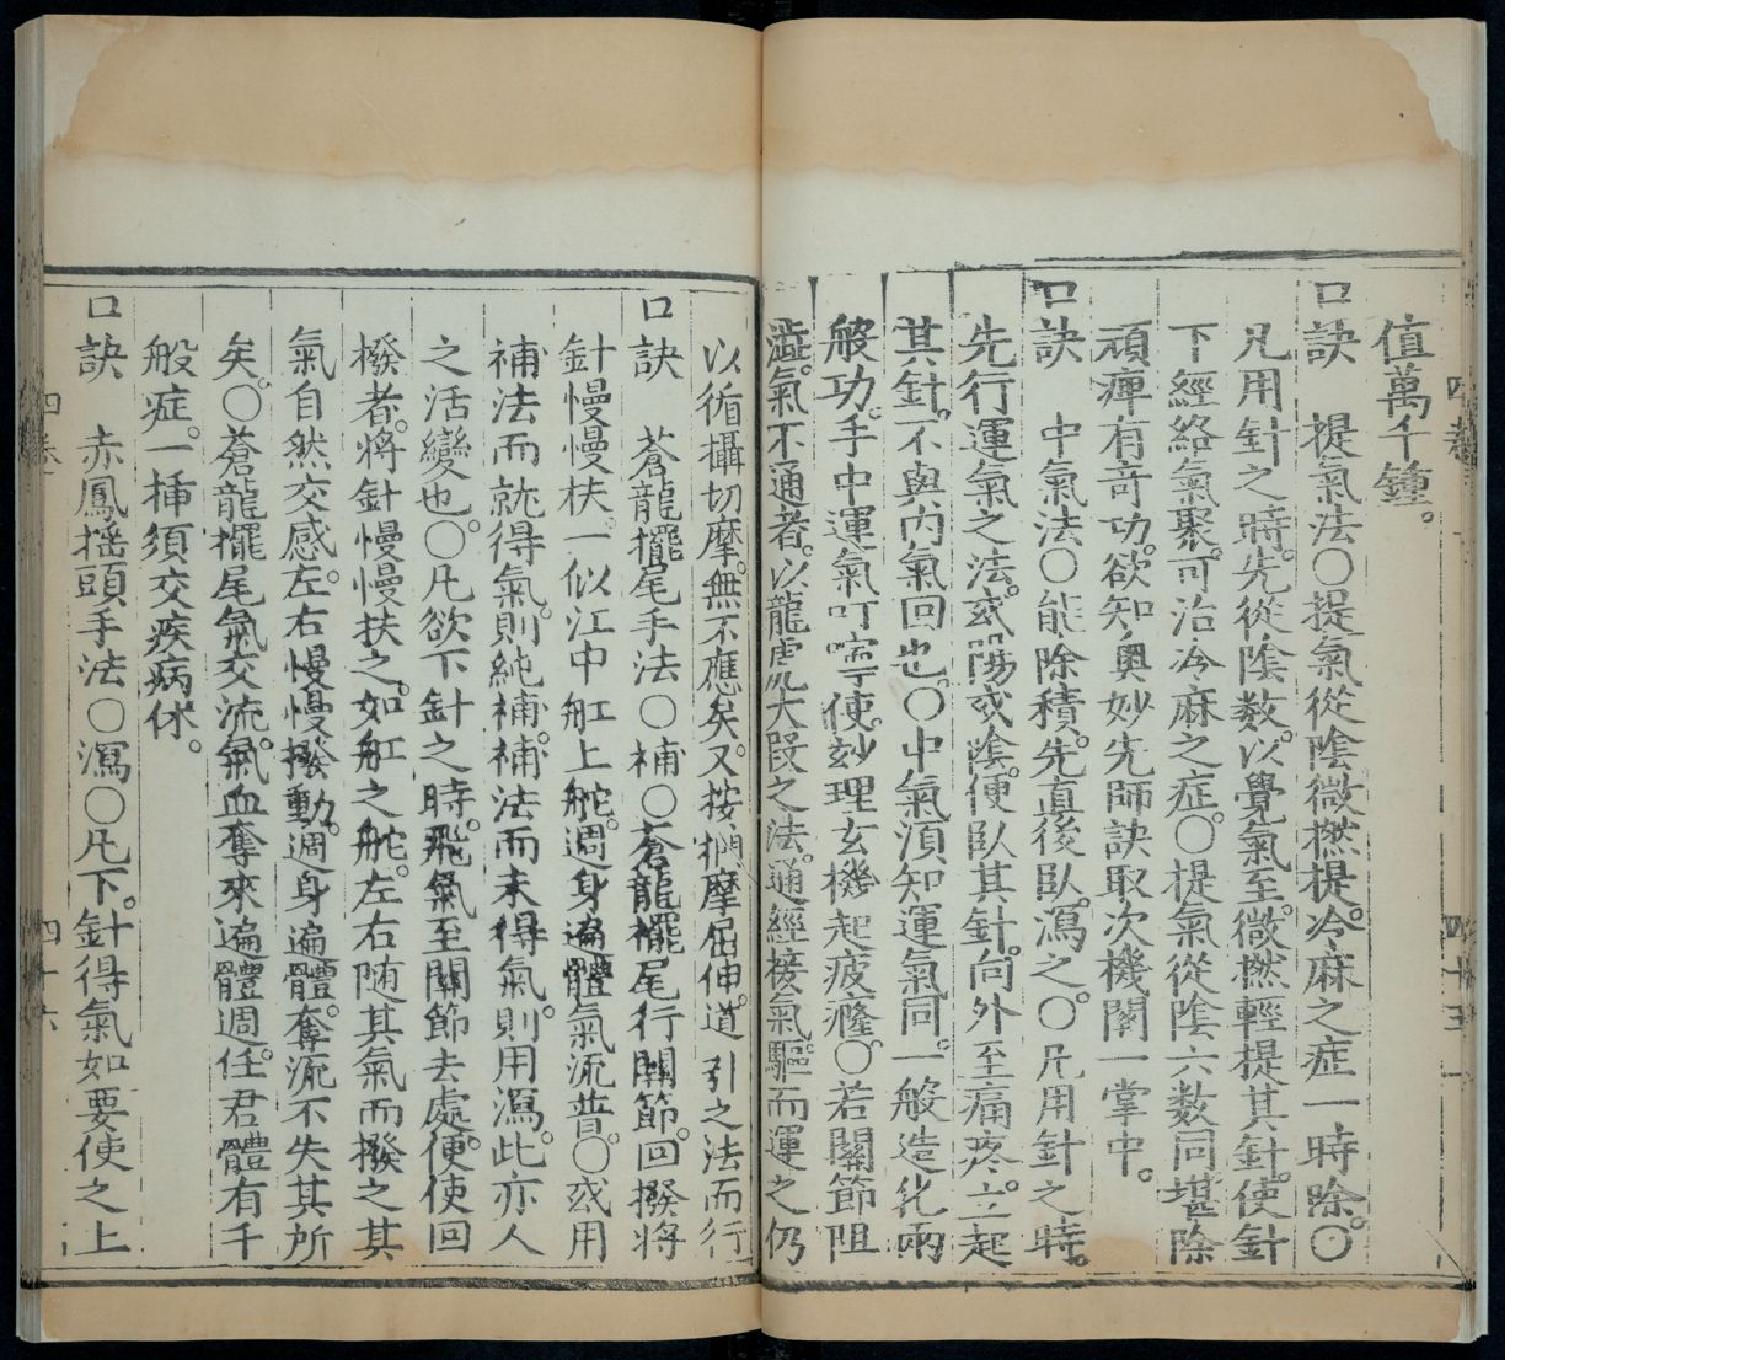 值萬千鍾。
口訣　提氣法○提氣從陰微撚提。冷麻之症一時除。○
凡用針之時。先從陰数。以覺氣至。微撚輕提其針。使針
下經絡氣聚。可治冷麻之症。○提氣從陰六数同堪除
頑痺有奇功。欲知奥妙先師訣取次機関一掌中。
口訣　中氣法○能除積。先直後臥。瀉之。○凡用針之時。
先行運氣之法。或陽或陰。便臥其針。向外至痛疼。立起
其針。不與内氣回也。○中氣湏知運氣同。一般造化兩
般功。手中運氣叮嚀使。玅理玄機起疲癃。○若關節阻
澁。氣不通者。以龍虎大段之法。通經接氣。驅而運之仍
以循攝切摩。無不應矣。又按捫摩屈伸。道引之法而行
口訣　蒼龍擺尾手法○補○蒼龍擺尾行関節。回撥將
針慢慢扶。一似江中舡上舵。週身遍體氣流普。○或用
補法而就得氣。則純補。補法而未得氣。則用瀉。此亦人
之活變也。○凡欲下針之時。飛氣至關節去處。便使回
撥者。將針慢慢扶之。如舡之舵。左右随其氣而撥之其
氣自然交感。左右慢慢撥動。週身遍體。奪流不失其所
矣。○蒼龍擺尾氣交流。氣血奪來遍體週。任君體有千
般症。一揷須交疾病休。
口訣　赤鳳搖頭手法○瀉○凡下。針得氣如要使之上
四十五
四十六